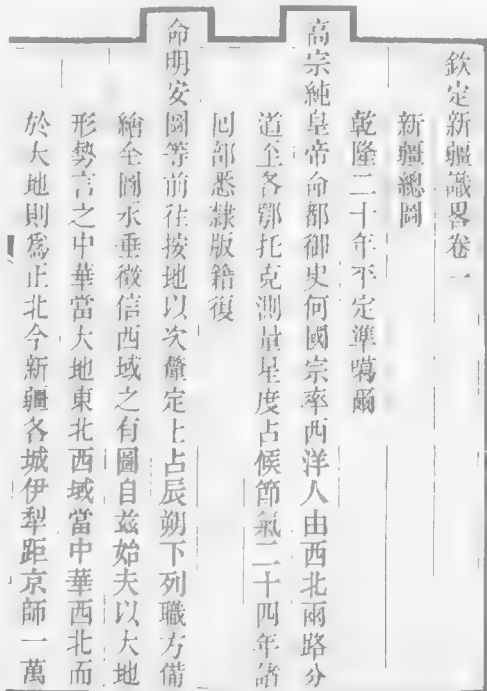 欽定新疆識畧卷一
新疆總圖
乾隆二十年平定準噶爾
高宗純皇帝命都御史何國宗率西洋人由西北兩路分
道至各鄂托克測量星度占候節氣二十四年諸
回部悉隸版籍復
命明安圖等前往按地以次釐定上占辰朔下列職方備
繪全圖永垂徵信西域之有圖自茲始夫以大地
形勢言之中華當大地東北西域當中華西北而
於大地則為正北今新疆各城伊犁距京師一萬